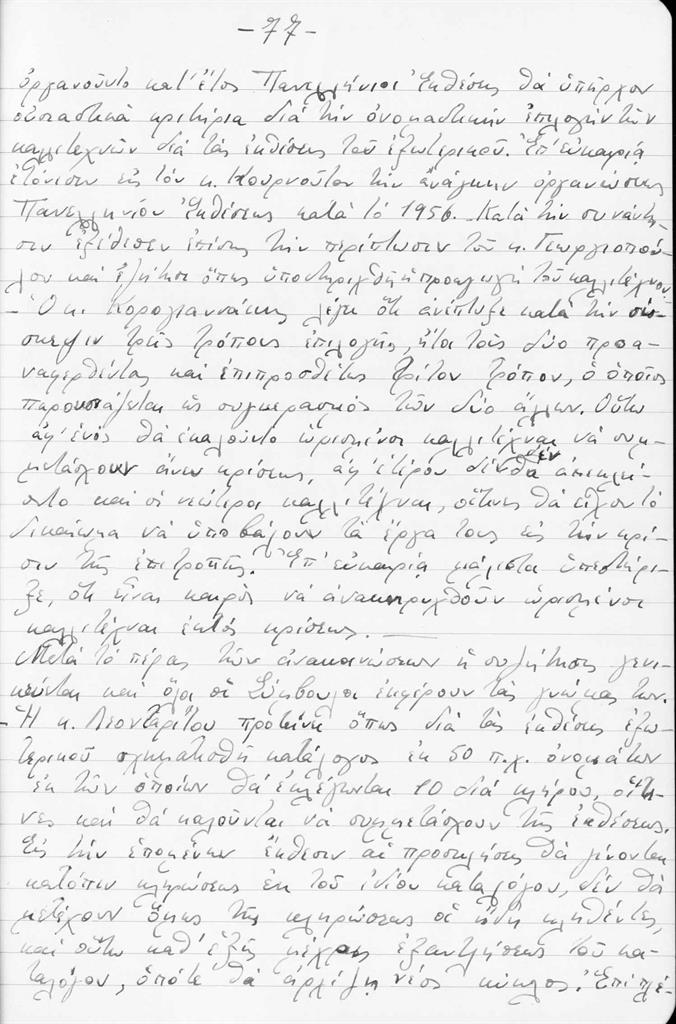 -77-
ὀργανοῦντο κατ' ἔτος Πανελλήνιοι Ἐκθέσεις θὰ ὑπῆρχον
οὐσιαστικὰ κριτήρια διὰ τὴν ὀνομαστικὴν ἐπιλογὴν τῶν
καλλιτεχνῶν διὰ τὰς ἐκθέσεις τοῦ ἐξωτερικοῦ. Ἐπ' εὐκαιρίᾳ
ἐτόνισεν εἰς τὸν κ. Κουρνοῦτον τὴν ἀνάγκην ὀργανώσεως
Πανελληνίου Ἐκθέσεως κατὰ τὸ 1956. Κατὰ τὴν συνάντη-
σιν ἐξέθεσεν ἐπίσης τὴν περίπτωσιν τοῦ κ. Γεωργιοπού-
λου καὶ ἐζήτησε ὅπως ὑποστηριχθῇ ἡ προαγωγὴ τοῦ καλλιτέχνου.
- Ὁ κ. Κορογιαννάκης λέγει ὅτι ἀνέπτυξε κατὰ τὴν σύ-
σκεψιν τρεῖς τρόπους ἐπιλογῆς, ἤτοι τοὺς δύο προα-
ναφερθέντας καὶ ἐπιπροσθέτως τρίτον τρόπον, ὁ ὁποῖος
παρουσιάζεται ὡς συγκερασμὸς τῶν δύο ἄλλων. Οὕτω
ἀφ' ἑνὸς θὰ ἐκαλοῦντο ὡρισμένοι καλλιτέχναι νὰ συμ-
μετάσχουν ἄνευ κρίσεως, ἀφ' ἑτέρου δὲν θὰ ἀπεκλεί-
οντο καὶ οἱ νεώτεροι καλλιτέχναι, οἵτινες θὰ εἶχον τὸ
δικαίωμα νὰ ὑποβάλουν τὰ ἔργα τους εἰς τὴν κρί-
σιν τῆς ἐπιτροπῆς. Ἐπ' εὐκαιρίᾳ μάλιστα ὑπεστήρι-
ξε, ὅτι εἶναι καιρὸς νὰ ἀνακηρυχθοῦν ὡρισμένοι
καλλιτέχναι ἐκτὸς κρίσεως.
Μετὰ τὸ πέρας τῶν ἀνακοινώσεων ἡ συζήτησις γενι-
κεύεται καὶ ὅλοι οἱ Σύμβουλοι ἐκφέρουν τὰς γνώμας των.
- Ἡ κ. Λεονταρίτου προτείνει ὅπως διὰ τὰς ἐκθέσεις ἐξω-
τερικοῦ σχηματισθῇ κατάλογος ἐκ 50 π.χ. ὀνομάτων
ἐκ τῶν ὁποίων θὰ ἐκλέγωνται 10 διὰ κλήρου, οἵτι-
νες καὶ θὰ καλοῦνται νὰ συμμετάσχουν τῆς ἐκθέσεως.
Εἰς τὴν ἑπομένην ἔκθεσιν αἱ προσκλήσεις θὰ γίνονται
κατόπιν κληρώσεως ἐκ τοῦ ἰδίου καταλόγου, δὲν θὰ
μετέχουν ὅμως τῆς κληρώσεως οἱ ἤδη κληθέντες,
καὶ οὕτω καθ' ἑξῆς μέχρις ἐξαντλήσεως τοῦ κα-
ταλόγου, ὁπότε θὰ ἀρχίζῃ νέος κύκλος. Ἐπὶ πλέ-